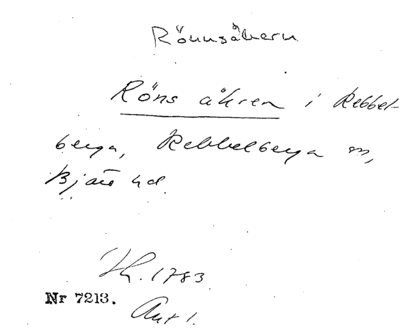 Rönnsåkern
Röns åkren i Rebbel-
berga, Rebbelberga sn,
Bjäre hd.
Sk. 1783
Nr 7213.
Akt 1.